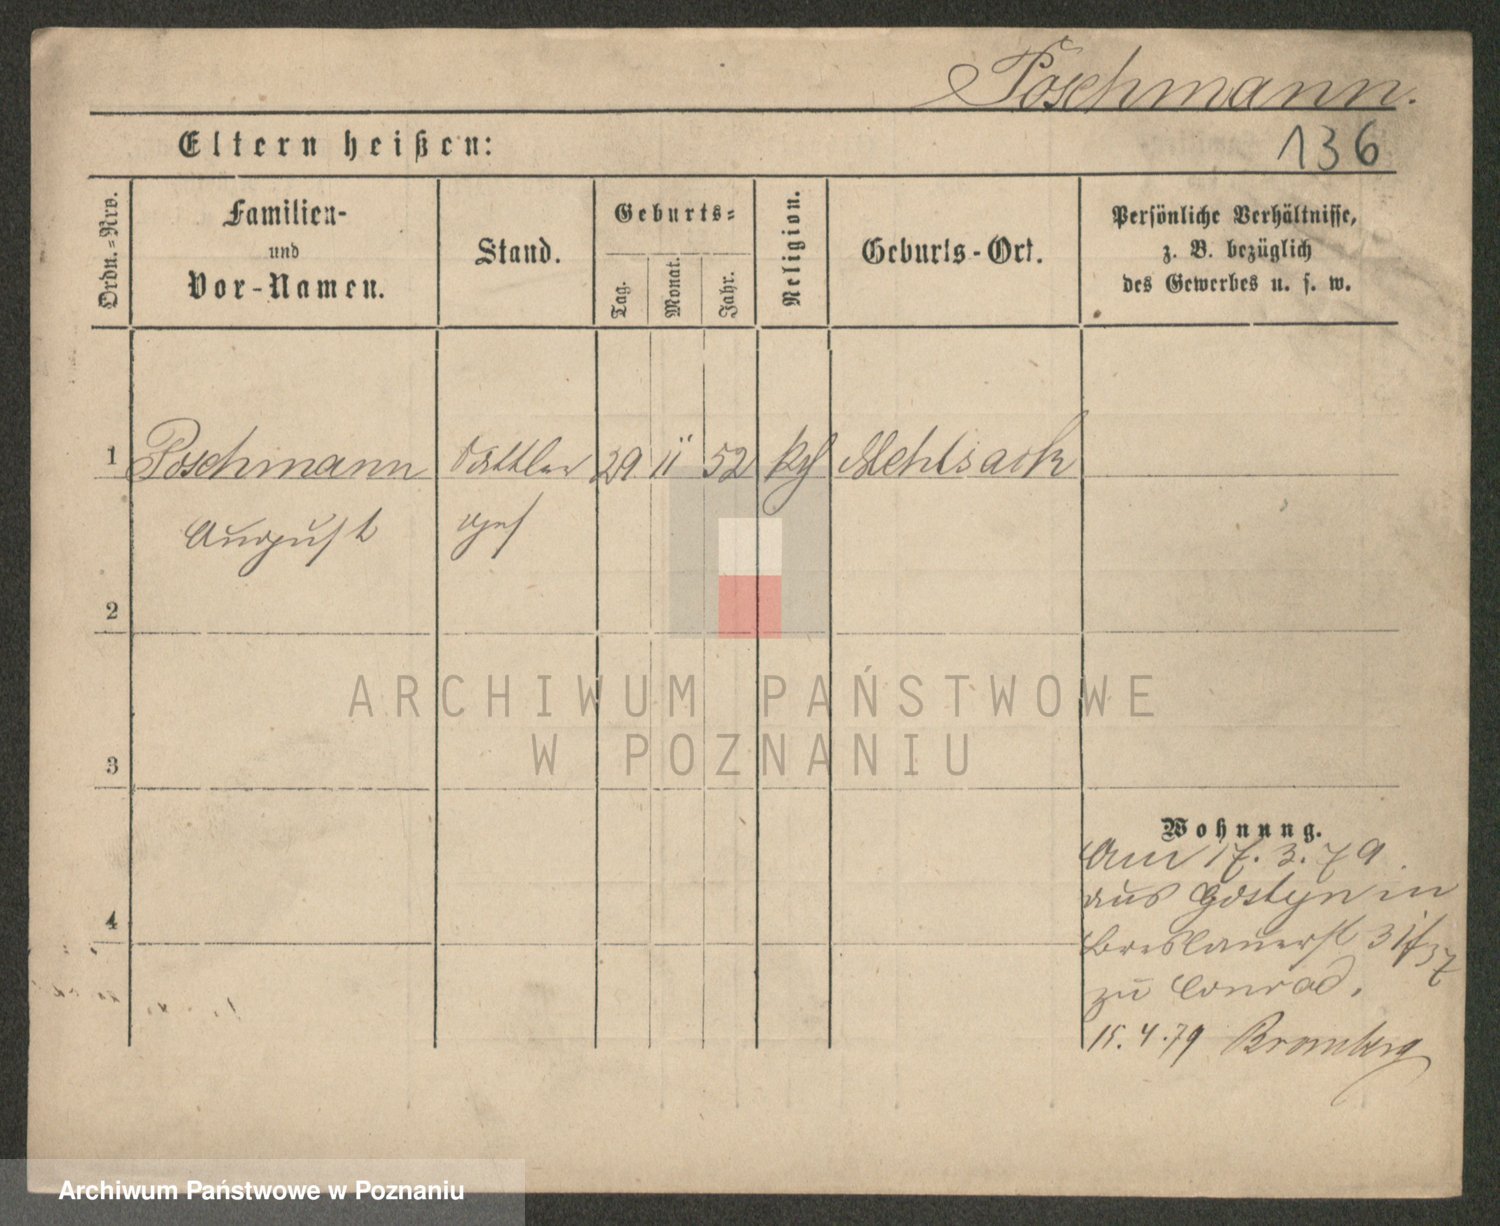 Poschmann.
Eltern heißen:
136
Ordn.=Nro.
Familien-
und
Vor-Namen.
Stand.
Geburts=
Tag.
Monat.
Jahr.
Religion.
Geburts-Ort.
Persönliche Verhältnisse,
z. B. bezüglich
des Gewerbes u. s. w.
1 Poschmann Sattler 29 11 52 Mehlsack
August ges
2
ARCHIWUM PAŃSTWOWE
W POZNANIU
3
Wohnung.
Am 17. 3. 79.
aus Gostyn in
4
Breslauerst 31/37
zu Conrad.
15. 4. 79 Bromberg
Archiwum Państwowe w Poznaniu